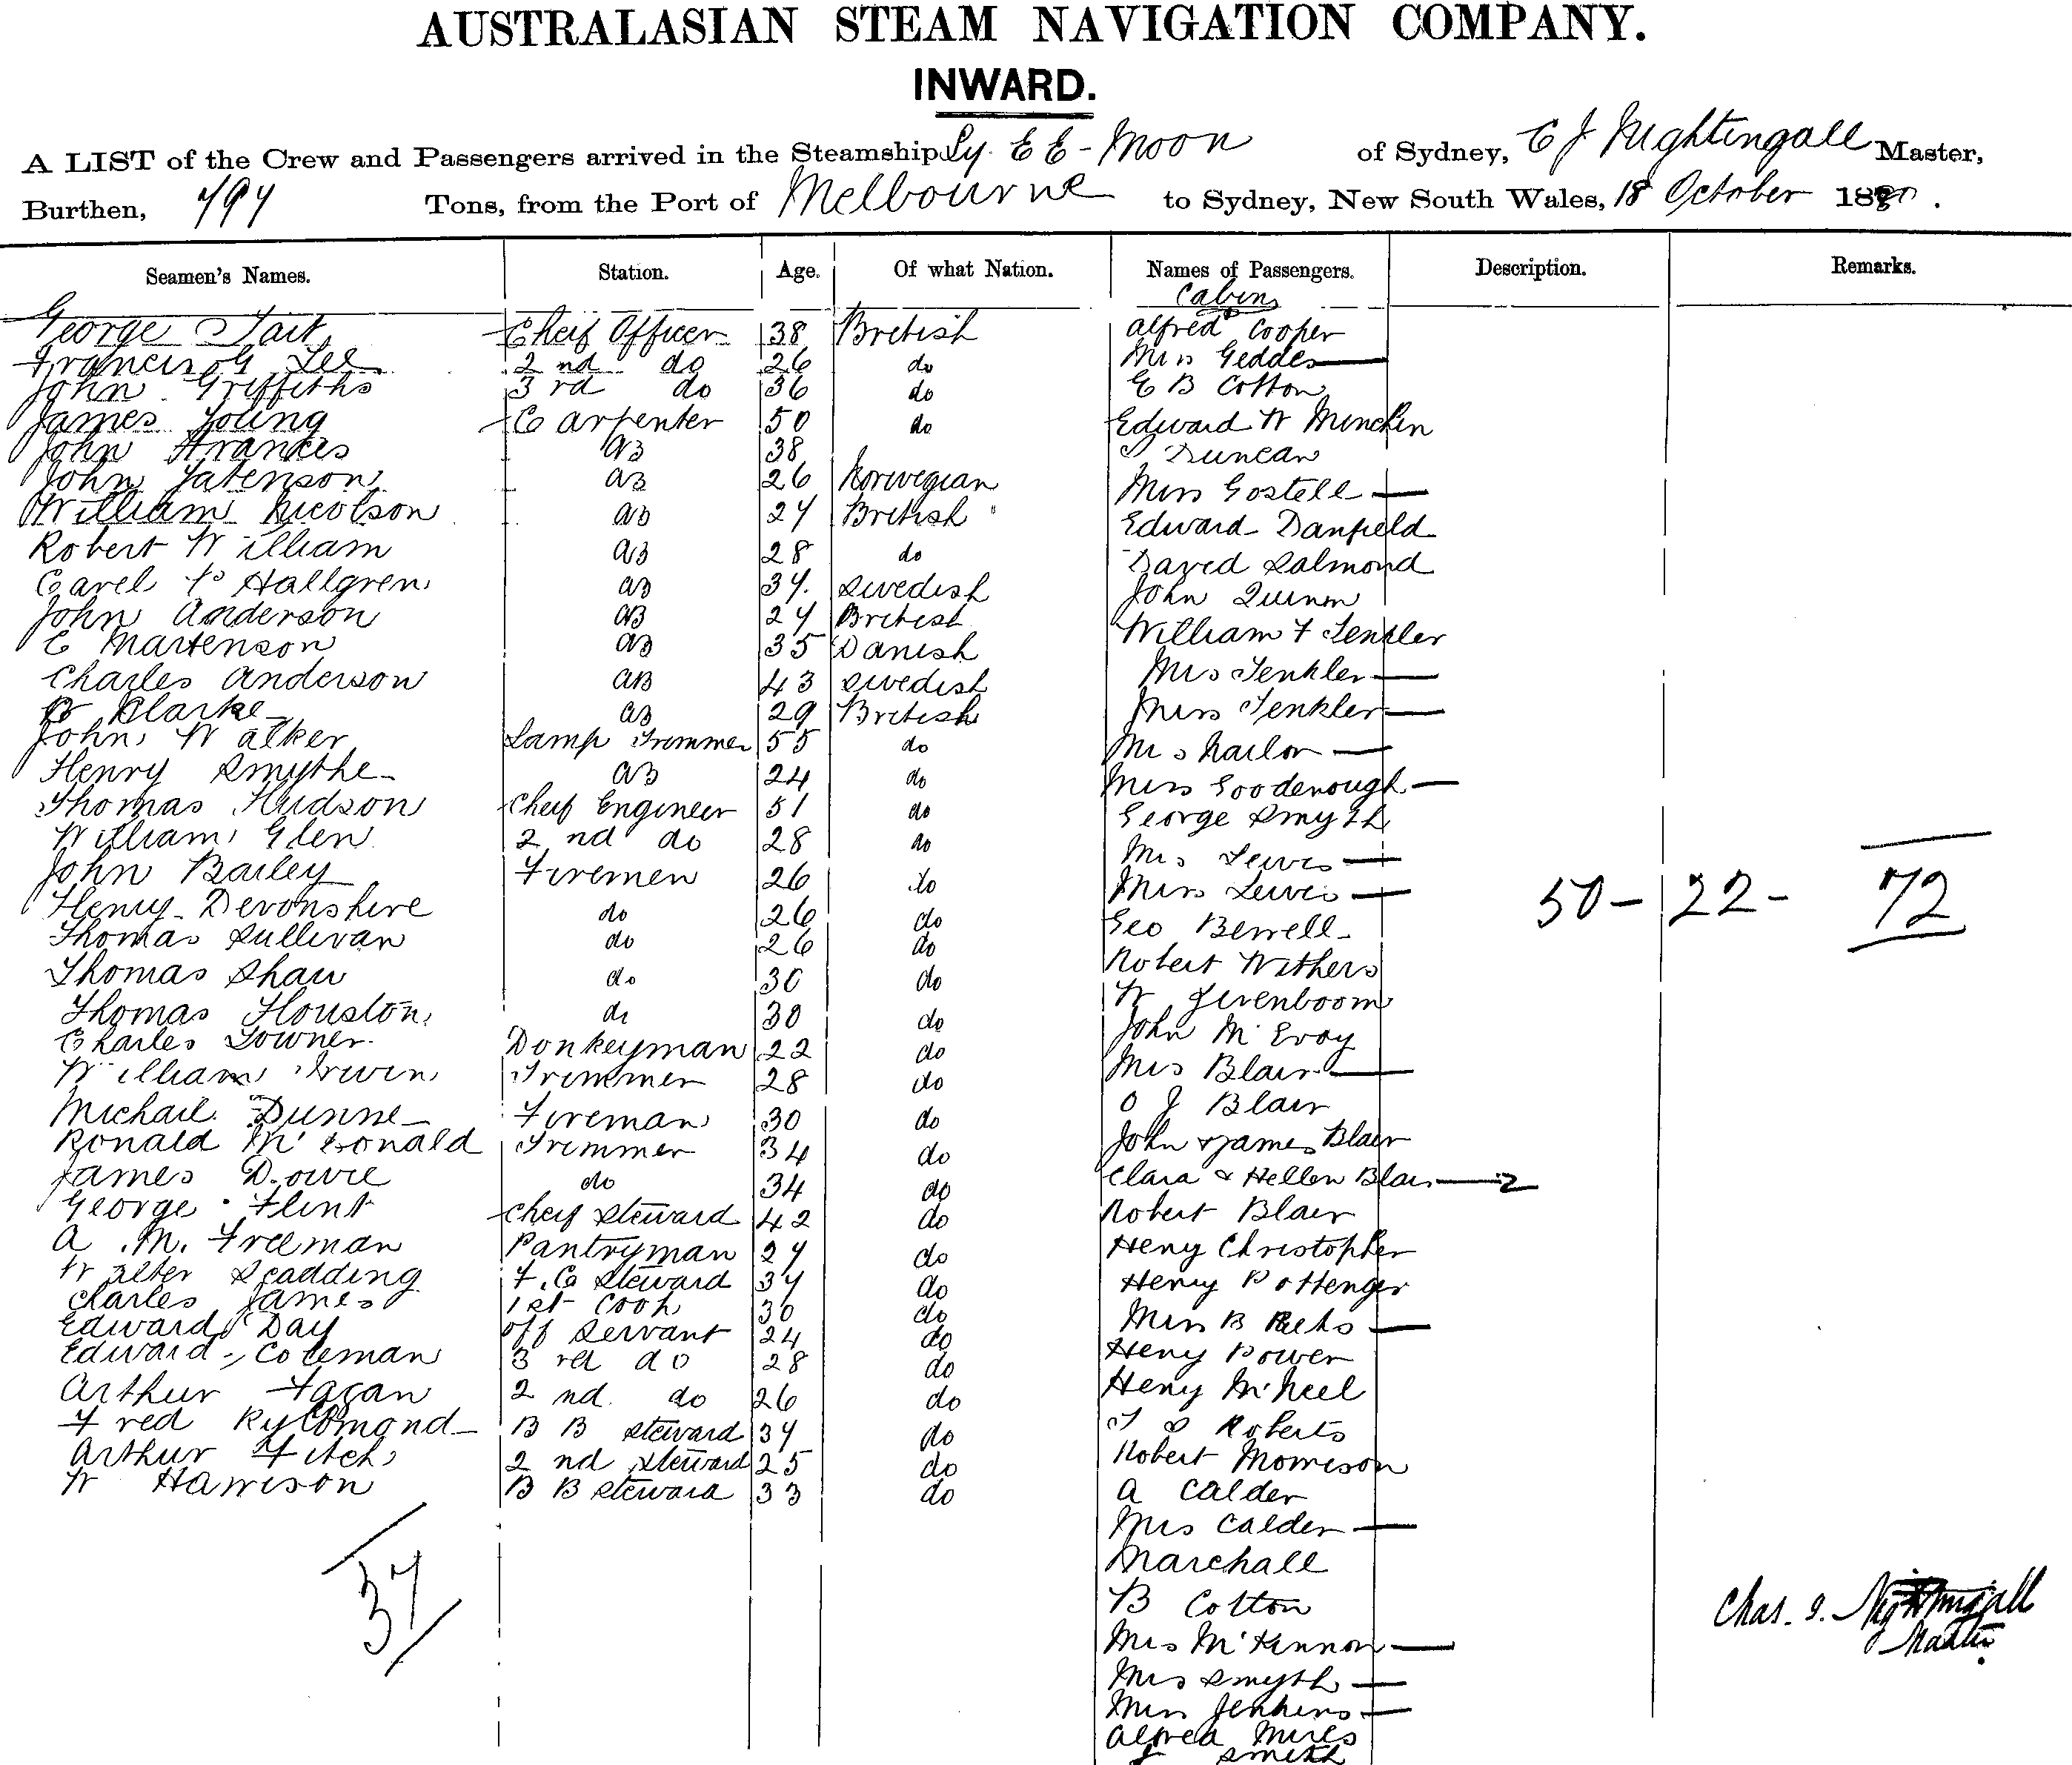 AUSTRALASIAN STEAM NAVIGATION COMPANY.
INWARD.
A LIST of the Crew and Passengers arrived in the Steamship Ly-EE-Moon of Sydney, C J Nightingall Master,
Burthen, 797 Tons, from the Port of Melbourne to Sydney, New South Wales, 18 October 1880.
Seamen's Names. Station. Age. Of what Nation. Names of Passengers. Description. Remarks.
Cabin
George Tait Cheif Officer 38 British Alfred Cooper
Francis G Lee 2nd do 26 do Miss Geddes
John Griffiths 3rd do 36 do E B Cotton
James Young Carpenter 50 do Edward W Minchin
John Frances AB 38 Duncan
John AB 26 Norwegian Miss Gostell
William Nicolson AB 27 British Edward Danfield
Robert William AB 28 do David Salmond
Carel Hallgren AB 37 Swedish John Quinn
John Anderson AB 27 British William F Tenkler
C Martenson AB 35 Danish Mrs Tenkler
Charles Anderson AB 43 Swedish Miss Tenkler
Clarke AB 29 British
John Walker Lamp Trimmer 55 do Miss Goodenough
Henry Smythe AB 24 do George Smyth
Thomas Hudson Cheif Engineer 51 do Mrs Lewis
William Glen 2nd do 28 do Miss Lewis
John Bailey Firemen 26 do Geo Berrell
Henry Devonshire do 26 do Robert Withers
50 - 22 - 72
Thomas Sullivan do 26 do W
Thomas Shaw do 30 do John McEvoy
Thomas Houston do 30 do Mrs Blair
Charles Towner Donkeyman 22 do O J Blair
William Irwin Trimmer 28 do John & James Blair
Michael Dunne Fireman 30 do Clara & Hellen Blair 2
Ronald McDonald Trimmer 34 do Robert Blair
James Dowie do 34 do Heny Christopher
George Flint Cheif Steward 42 do Henry Pottenger
A. M. Freeman Pantryman 27 do Miss B
Walter Scadding F. C Steward 37 do Heny Power
Charles James 1st Cook 30 do Heny McNeel
Edward Day Off Servant 24 do T S Roberts
Edward Coleman 3rd do 28 do Robert Morrison
Arthur Fagan 2nd do 26 do A Calder
Fred B B Steward 37 do Mrs Calder
Arthur Fitch 2nd Steward 25 do Marchall
W Harrison B B Steward 33 do B Cotton
37
Mrs McKinnon
Mrs Smyth
Miss Jenkins
Alfred Miles
Smith
Chas. J. Nightingall
Master